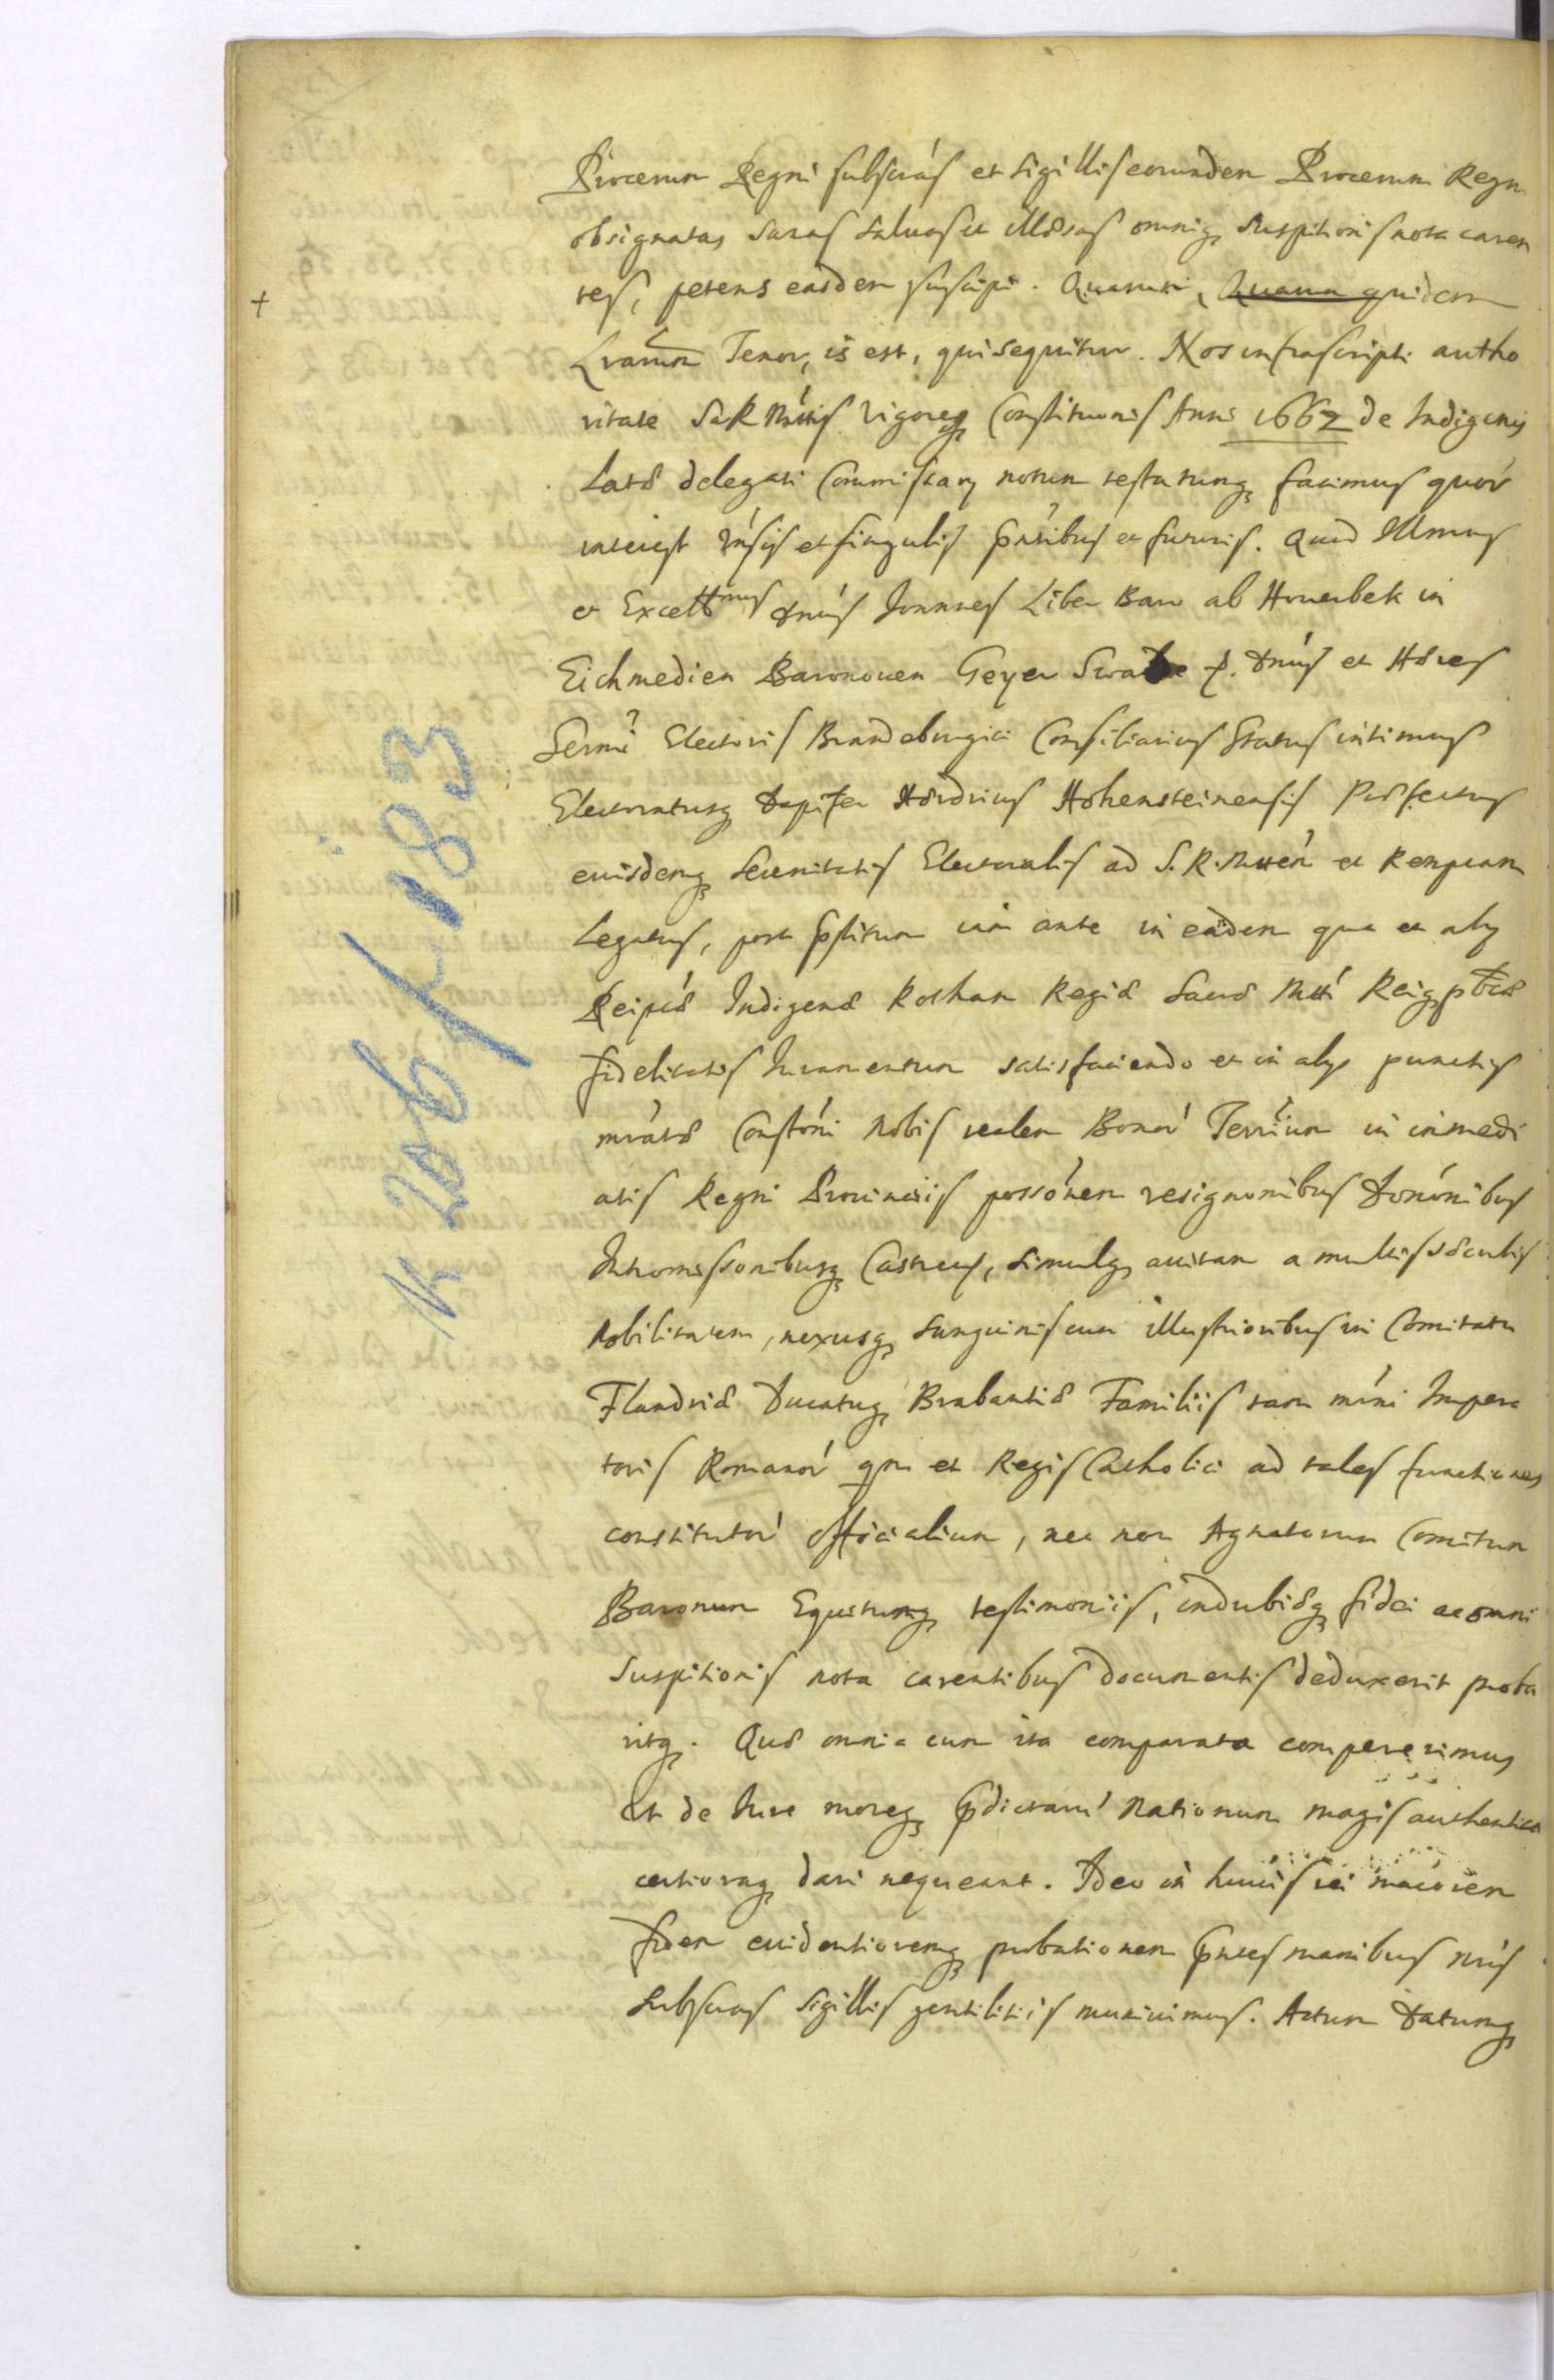 Procerum Regni subscrás et sigillis eorundem Procerum Regni
obsignatas sanas saluas et illæsas omniq, suspitionis nota caren
tes, petens easdem suscipi. Quarum, Quarum quidem
+
Lrarum Tenor, is est, qui sequitur. Nos infrascripti autho
ritate SaR Mttis vigoreq Constituonis Anni 1662 de Indigenis
Latæ delegati Commissarÿ notum testatumq, facimus quor
interest vnsis et singulis pñtibus et futuris. Quod Illmus
et Excellmus Dnús Joannes Liber Baro ab Houerbek in
Eichmedien Baronouen Geyer Swa p. Dnús et Hæres
Sermi Electoris Brandeburgici Consiliarius Status intimus
Electoratusq Dapifer Hæedrius Hohensteinensis Præfectus
eiusdemq Serenitatis Electoralis ad S.R.Mttem et Rempcam
Legatus, post pstitum iam ante in eadem qua et alÿ
Reipcæ Indigenæ Rotham Regiæ Sacræ Mtti Reiq pticæ
fidelitatis Iuramentum satisfaciendo et in alÿs punctis
mratæ Constóni Nobis realem Bonor Terrium in immedi
atis Regni Prouinciis possónem resignonibus Donónibus
Intromissonibusq Castren, simulq, auitam a multis sæculis
Nobilitatem, nexusq, Sanguinis cum illustrioribus in Comitatu
Flandriæ Ducatuq, Brabantiæ Familiis tam mini Impera
toris Romanor qm et Regis Catholici ad tales functiones
constitutor officialium, nec non Agnatorum Comitum
Baronum Equitumq, testimoniis, indubiæq, fidei ac omni
Suspitionis nota carentibus documentis deduxerit proba
ritq. Quæ omnia cum ita comparata compererimus
et de Iure moreq, pdictaru Nationum magis authentica
certioraq, dari nequeant. Ideo in huius rei maiorem
fidem euidentioremq, probationem pntes manibus nris
Subscras Sigillis gentilitiis muniuimus. Actum Datumq,
K 206 / 183